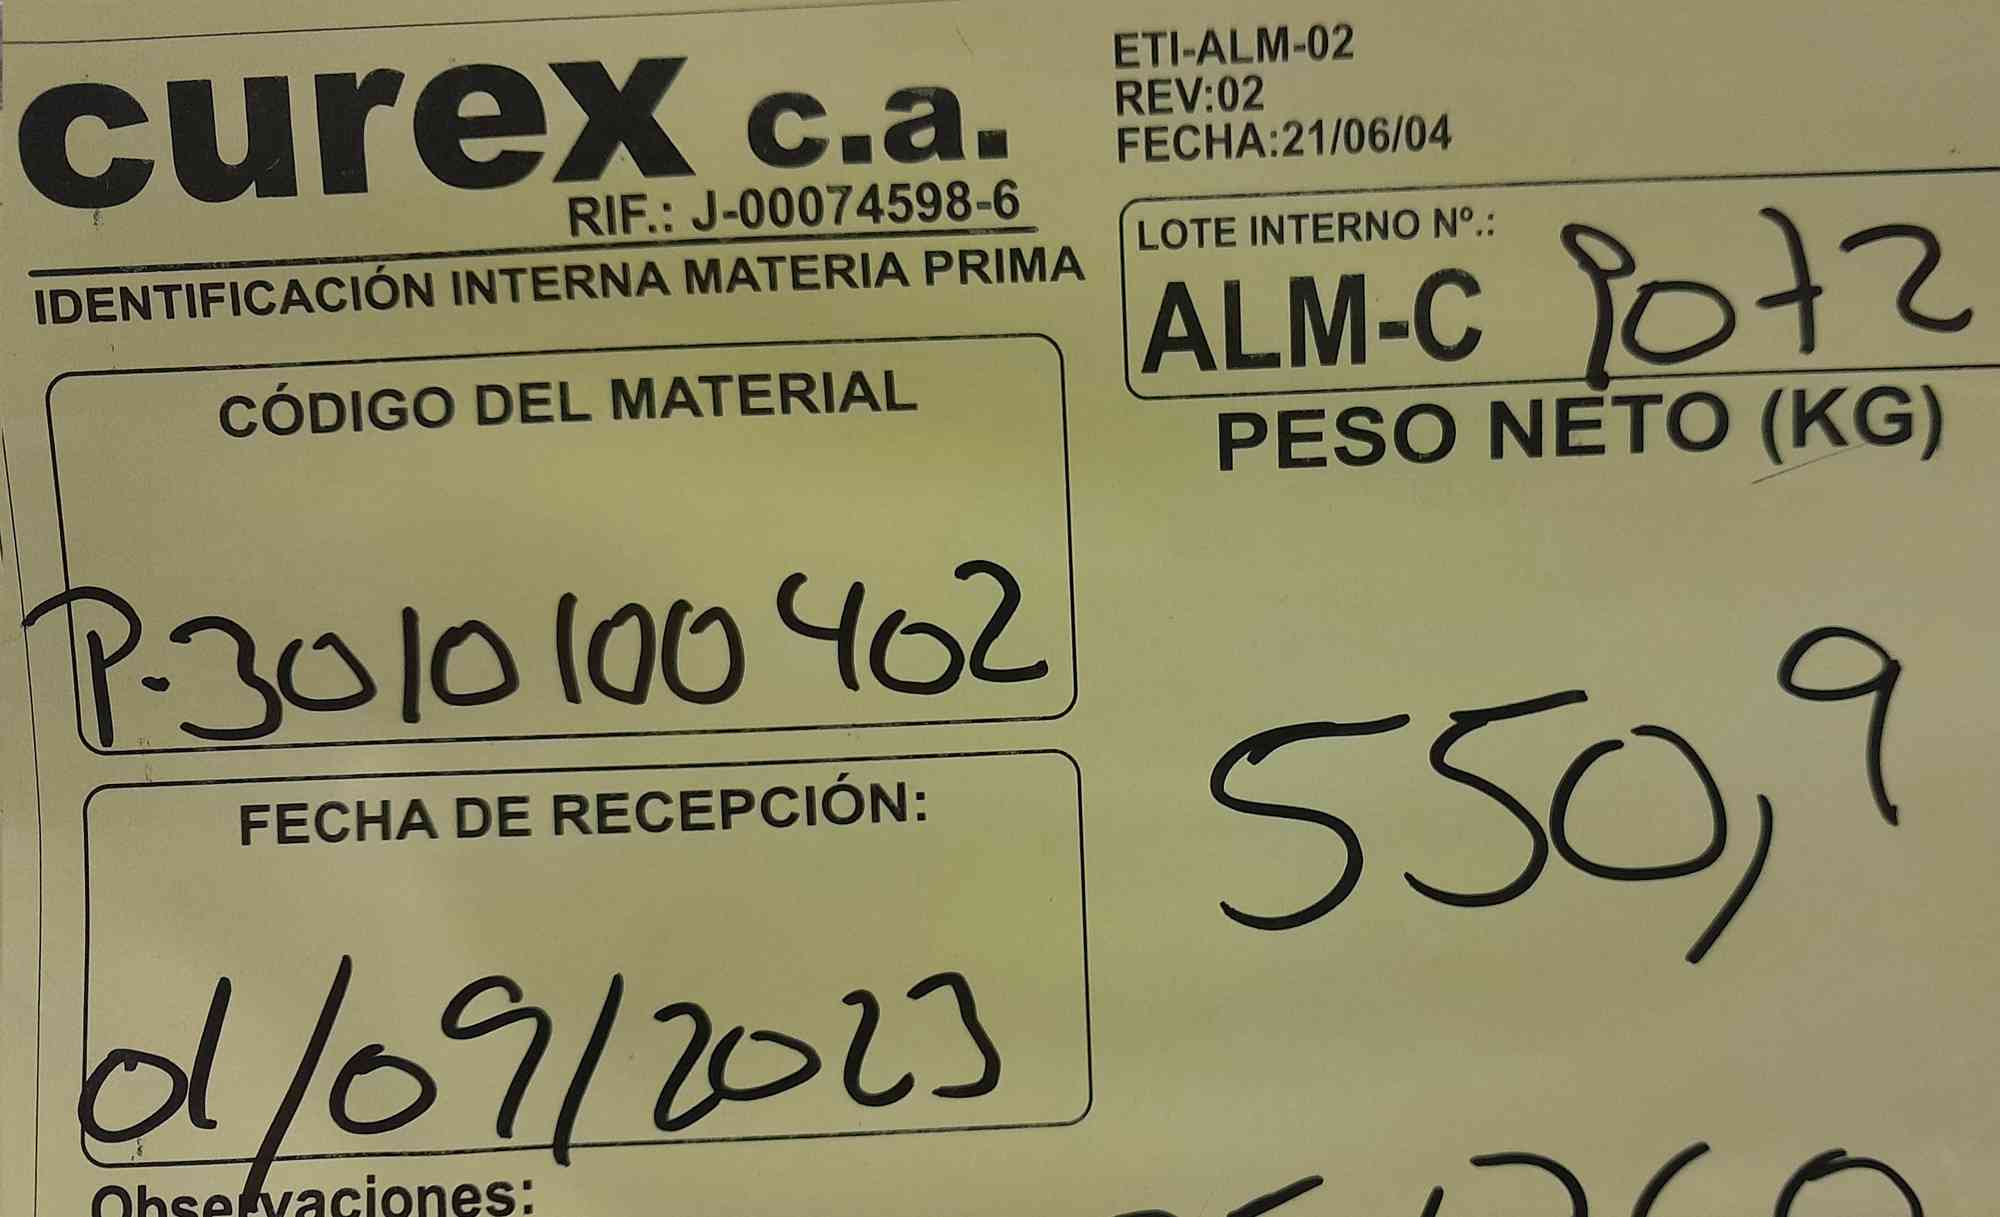 curex c.a.
RIF.: J-00074598-6
IDENTIFICACIÓN INTERNA MATERIA PRIMA
ETI-ALM-02
REV:02
FECHA:21/06/04
LOTE INTERNO Nº.:
ALM-C 9072
PESO NETO (KG)
550,9
CÓDIGO DEL MATERIAL
P-3010100402
FECHA DE RECEPCIÓN:
01/09/2023
Observaciones: